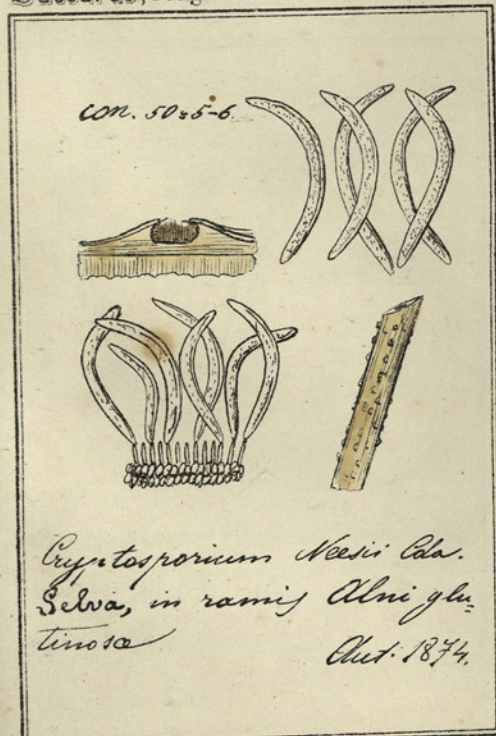 con. 50≈5-6.
Cryptosporium Neesii Cda.
Selva, in ramis Alni glu=
tinosæ
Aut. 1874.